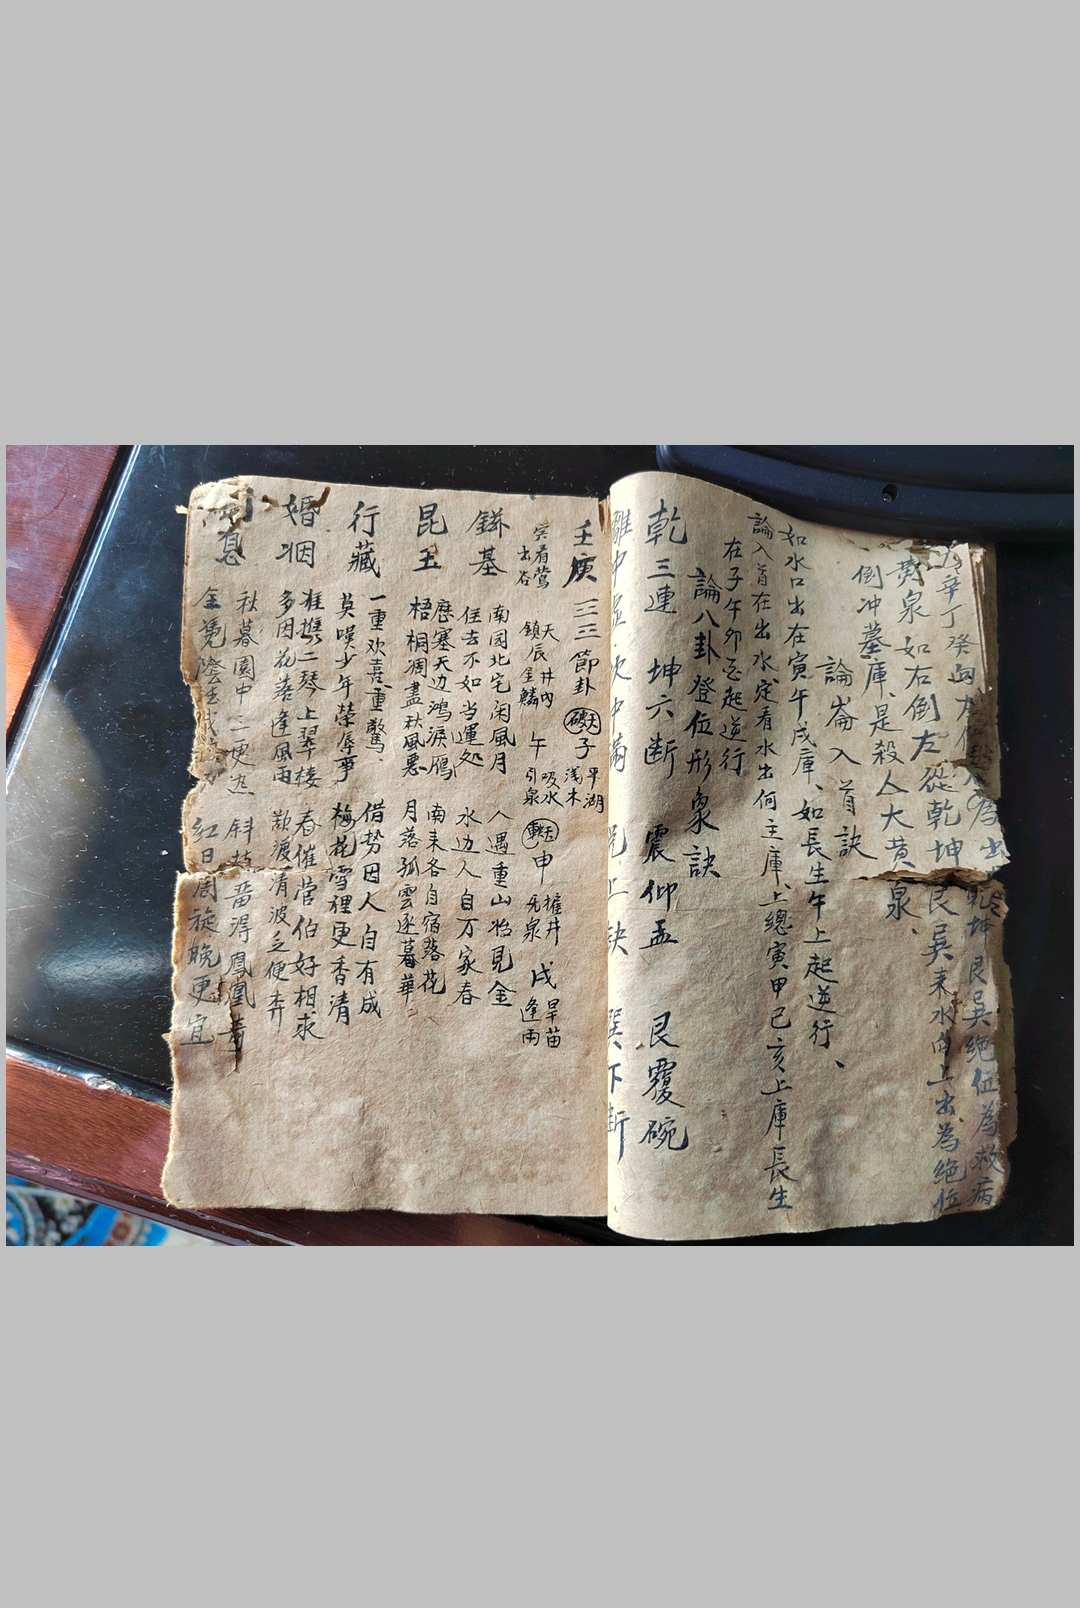 辛丁癸
乾坤艮巽絶位為救病
黄泉如右倒左從乾坤艮巽来水向上出為絶位
倒冲墓庫、是殺人大黄泉、
論崙入首訣
如水口出在寅午戌庫、如長生午上起逆行、
論入首在出水、定看水出何主庫、上總寅甲己亥上庫長生
在子午卯酉起逆行
論八卦登位形象訣
乾三連 坤六断 震仰盂 艮覆碗
離中虛 坎中滿 兌上缺 巽下断
壬庚 節卦 子 平湖
浅木
天井内
鎮辰金鱗 午 吸水
引泉 申 掘井
无泉 戌 旱苗
逢雨
着莺
出谷
基 南园北宅闲風月 人遇重山始見金
住去不如当運処 水边人自万家春
昆玉 歷塞天边鴻淚鴈 南来各自宿落花
梧桐凋盡秋風悪 月落孤雲逐暮華
行藏 一重欢喜一重驚、 借势因人自有成
莫嘆少年榮辱爭 梅花雪狸更香清
婚姻 准携二琴上翠楼 春催营伯好相求
多因花落逢風雨 歡渡清波之便奔
息 秋暮園中二更 斜枝 鳳凰
紅日周旋晚更宜